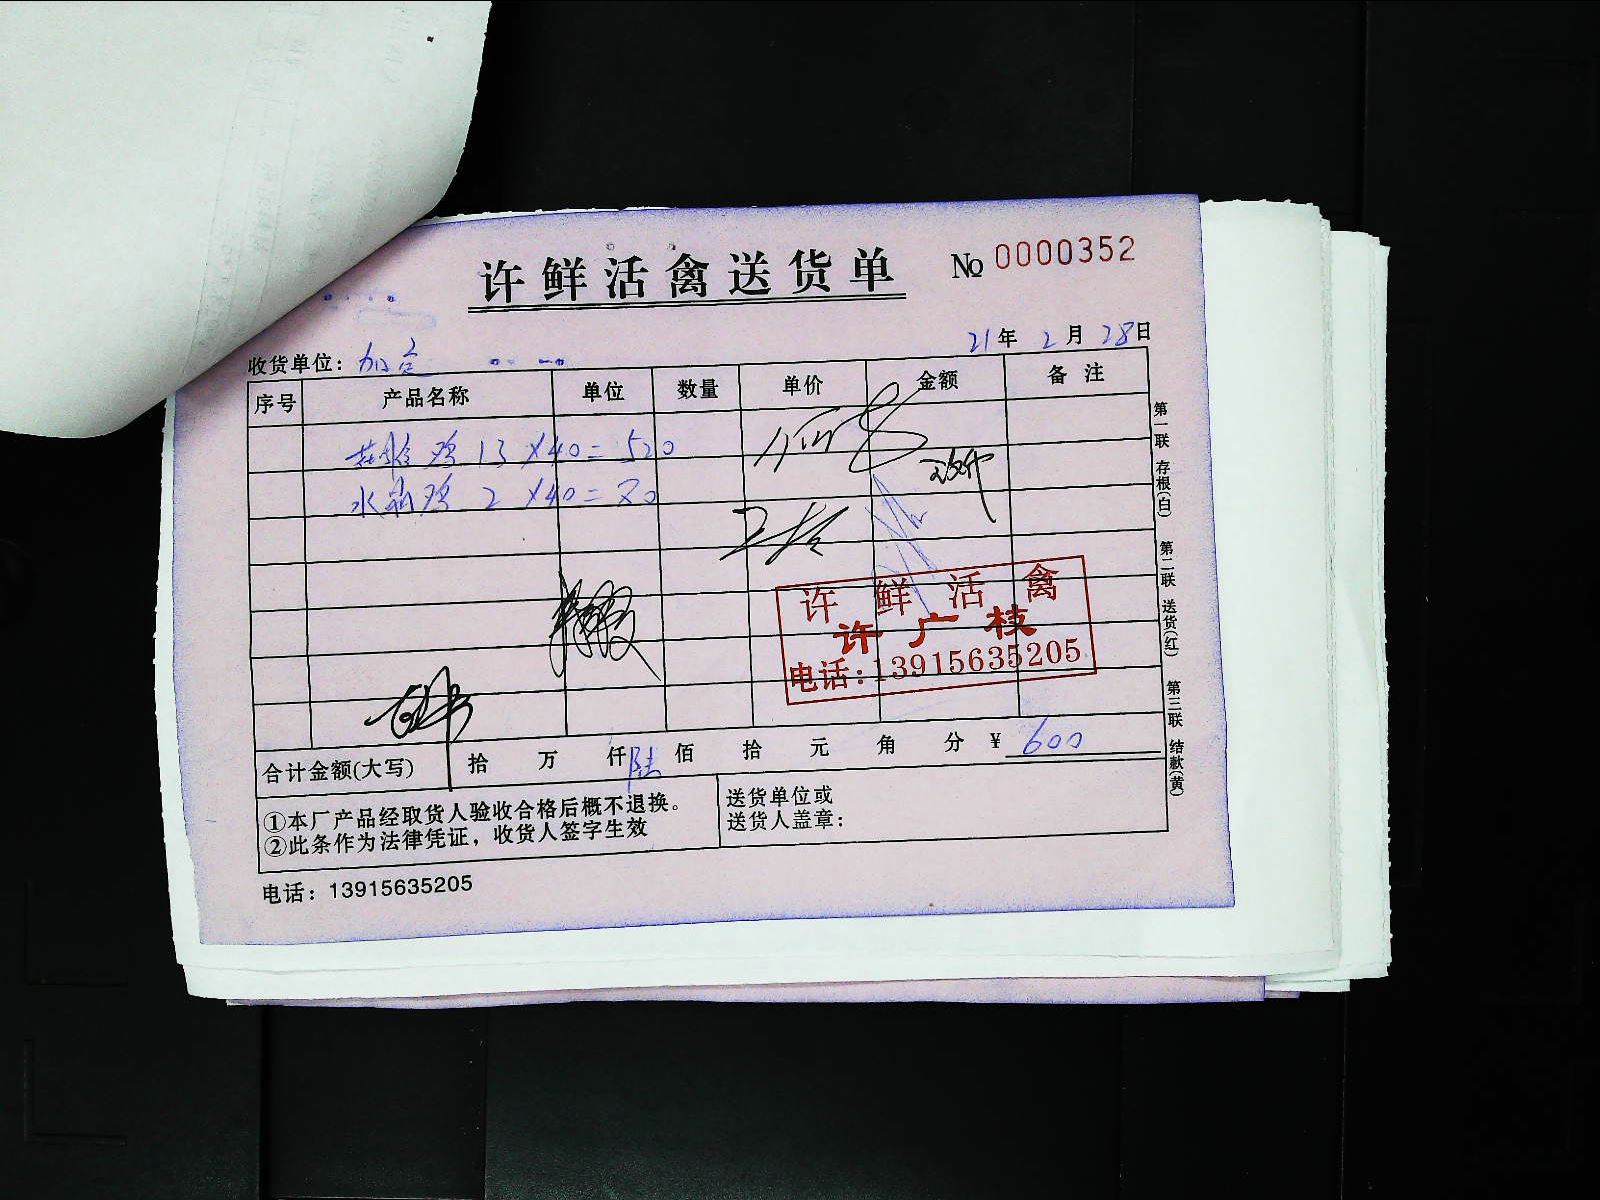 许鲜活禽送货单
№ 0000352
21年 2月 28日
收货单位：加合
序号 产品名称 单位 数量 单价 金额 备注
鸡 13 X40=520
水 鸡 2 X40=80
许鲜活禽
许广枝
电话:13915635205
合计金额(大写) 拾 万 仟 陆佰 拾 元 角 分 ¥ 600
①本厂产品经取货人验收合格后概不退换。
②此条作为法律凭证，收货人签字生效
送货单位或
送货人盖章：
电话：13915635205
第一联 存根(白)
第二联 送货(红)
第三联 结款(黄)